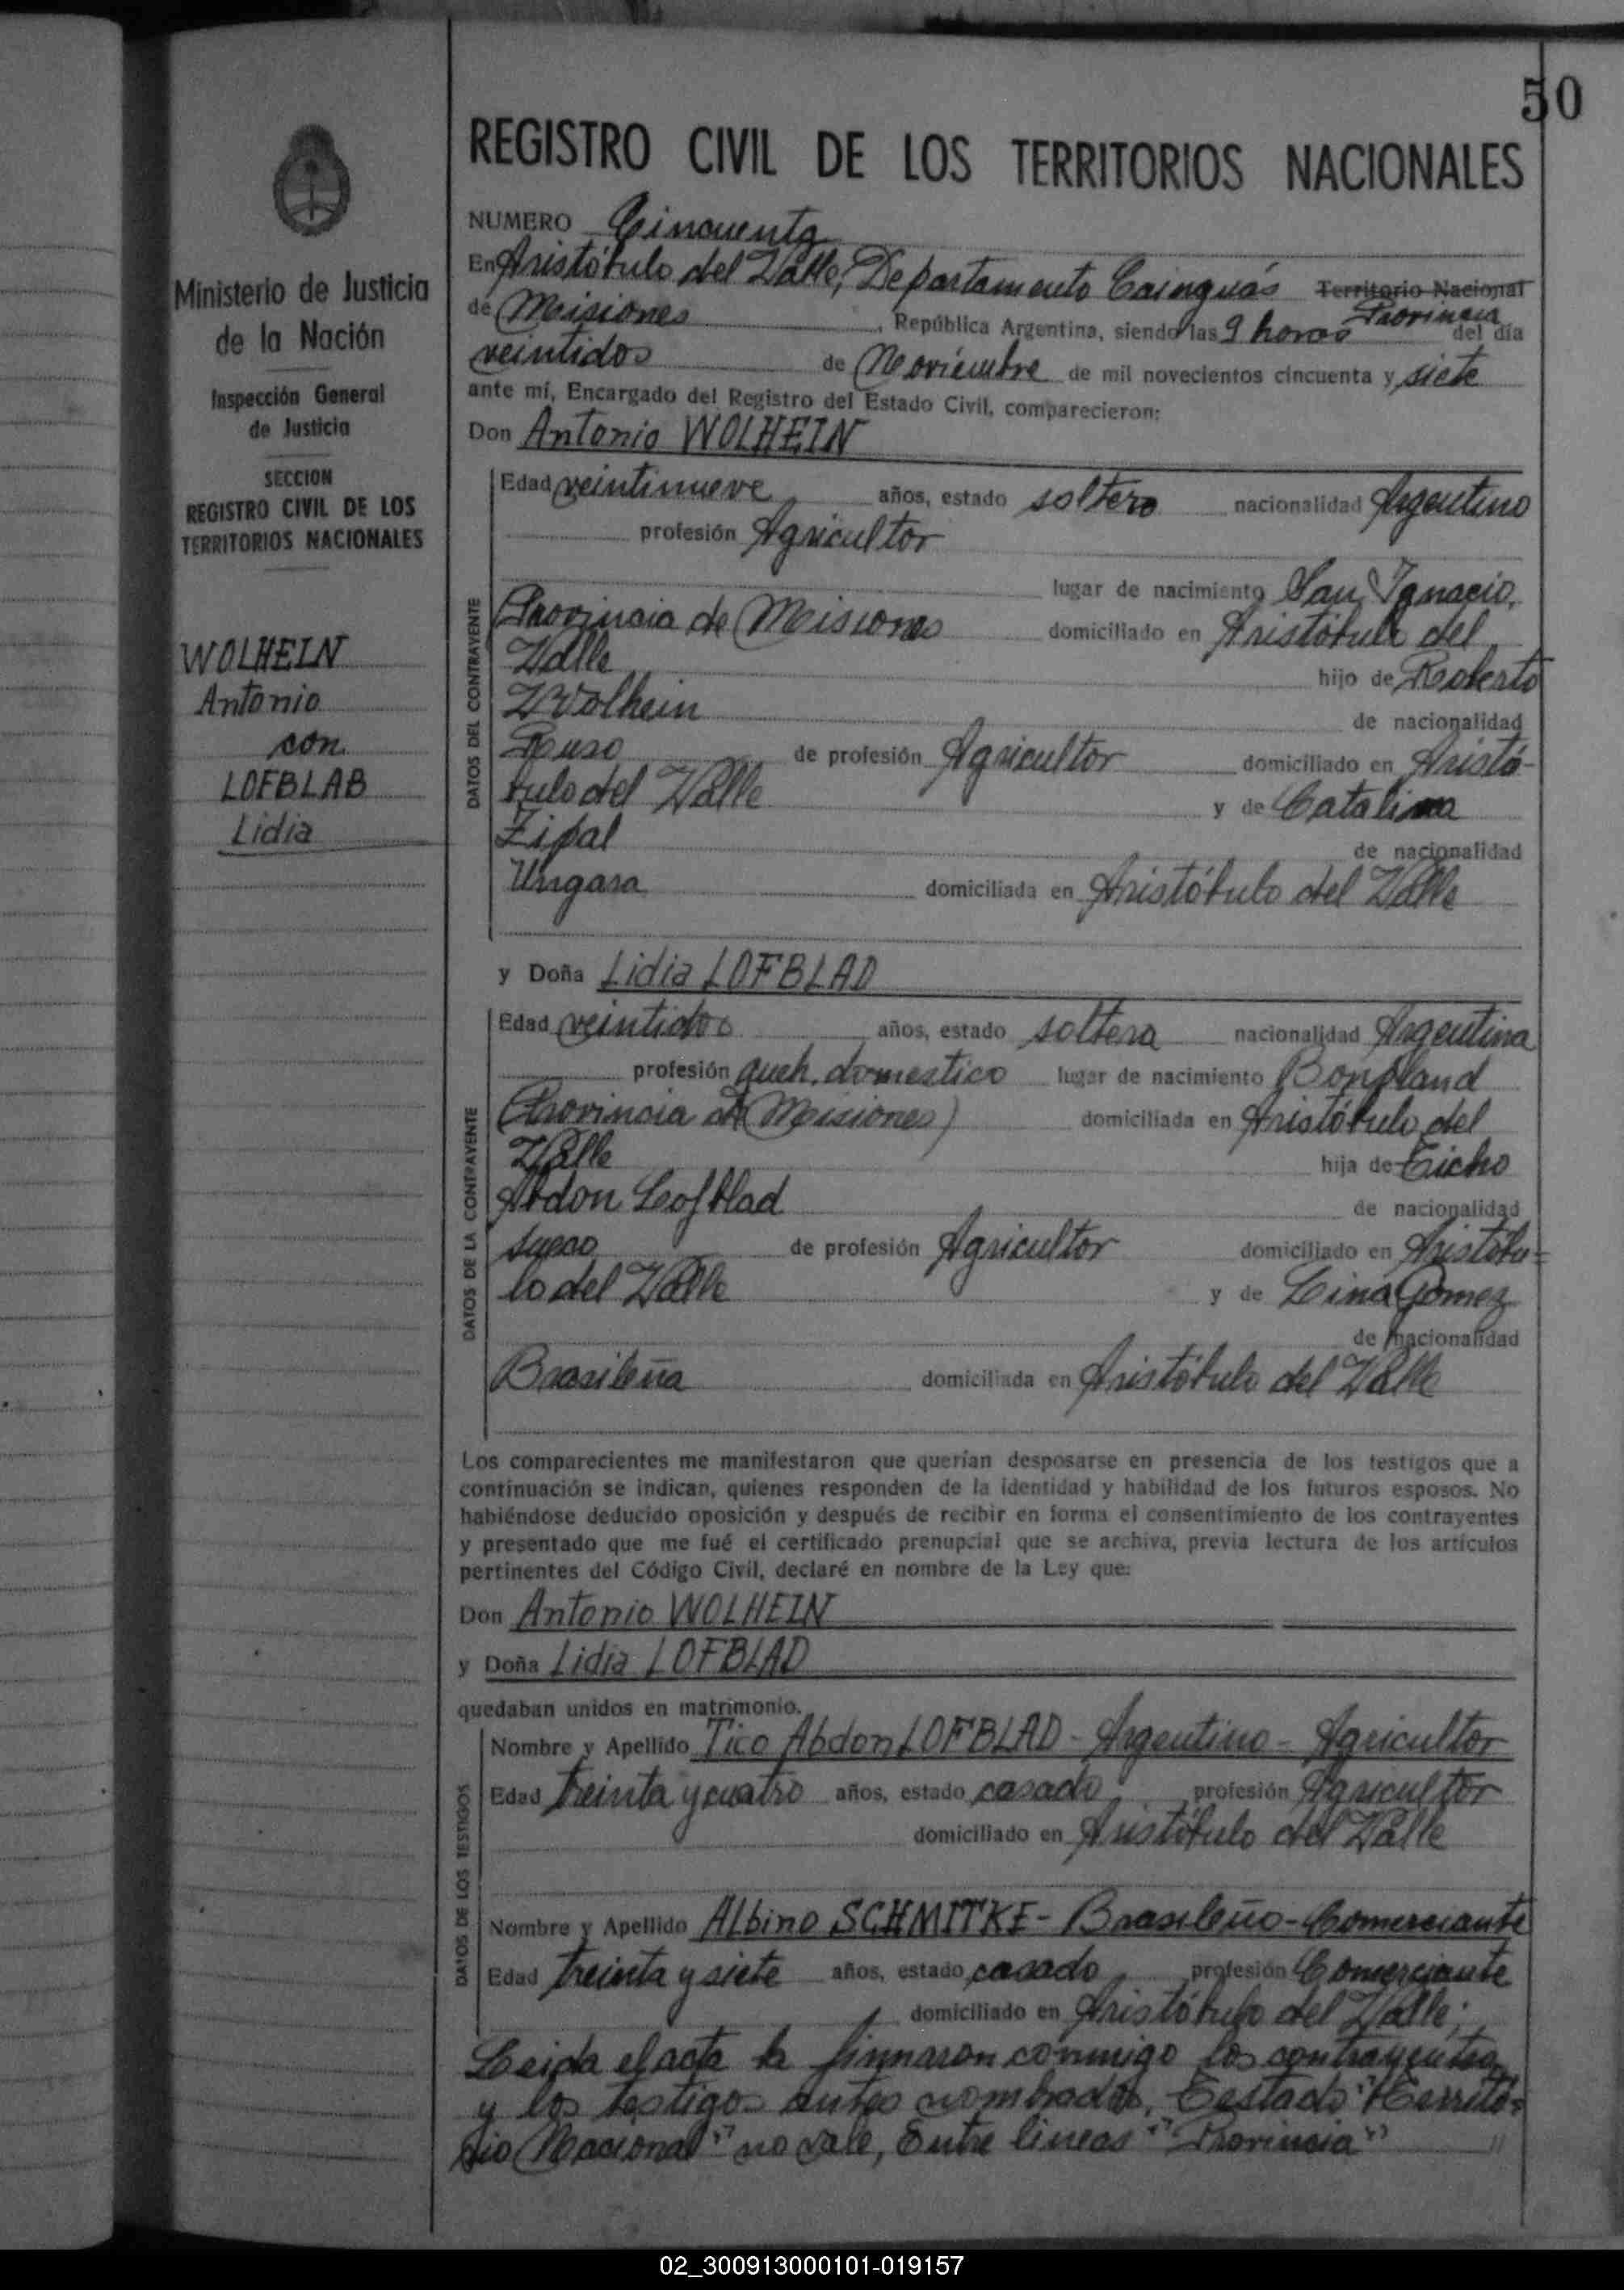 50
Ministerio de Justicia
de la Nación
Inspección General
de Justicia
SECCION
REGISTRO CIVIL DE LOS
TERRITORIOS NACIONALES
WOLHEIN
Antonio
con
LOFBLAB
Lidia
REGISTRO CIVIL DE LOS TERRITORIOS NACIONALES
NUMERO Cincuenta
En Aristóbulo del Valle, Departamento Cainguás Territorio Nacional
Provincia
de Misiones, República Argentina, siendo las 9 horas del día
veintidos de Noviembre de mil novecientos cincuenta y siete
ante mí, Encargado del Registro del Estado Civil, comparecieron:
Don Antonio WOLHEIN
DATOS DEL CONTRAYENTE
Edad veintinueve años, estado soltero nacionalidad Argentino
profesión Agricultor
lugar de nacimiento San Ignacio,
Provincia de Misiones domiciliado en Aristóbulo del
Valle hijo de Roberto
Wolhein de nacionalidad
Ruso de profesión Agricultor domiciliado en Aristó-
bulo del Valle y de Catalina
Zipal de nacionalidad
Ungara domiciliada en Aristóbulo del Valle
y Doña Lidia LOFBLAD
DATOS DE LA CONTRAYENTE
Edad veintidos años, estado soltera nacionalidad Argentina
profesión queh. domestico lugar de nacimiento Bonpland
(Provincia de Misiones) domiciliada en Aristóbulo del
Valle hija de Ticho
Abdon Lofblad de nacionalidad
sueco de profesión Agricultor domiciliado en Aristóbu=
lo del Valle y de Lina Gomez
de nacionalidad
Brasileña domiciliada en Aristóbulo del Valle
Los comparecientes me manifestaron que querían desposarse en presencia de los testigos que a
continuación se indican, quienes responden de la identidad y habilidad de los futuros esposos. No
habiéndose deducido oposición y después de recibir en forma el consentimiento de los contrayentes
y presentado que me fué el certificado prenupcial que se archiva, previa lectura de los artículos
pertinentes del Código Civil, declaré en nombre de la Ley que:
Don Antonio WOLHEIN
y Doña Lidia LOFBLAD
quedaban unidos en matrimonio.
DATOS DE LOS TESTIGOS
Nombre y Apellido Tico Abdon LOFBLAD - Argentino - Agricultor
Edad treinta y cuatro años, estado casado profesión Agricultor
domiciliado en Aristóbulo del Valle
Nombre y Apellido Albino SCHMITKE - Brasileño - Comerciante
Edad treinta y siete años, estado casado profesión Comerciante
domiciliado en Aristóbulo del Valle;
Leida el acta la firmaron conmigo los contrayentes
y los testigos antes nombrados. Testado "Territo=
rio Nacional" no vale, Entre lineas "Provincia"
02_300913000101-019157